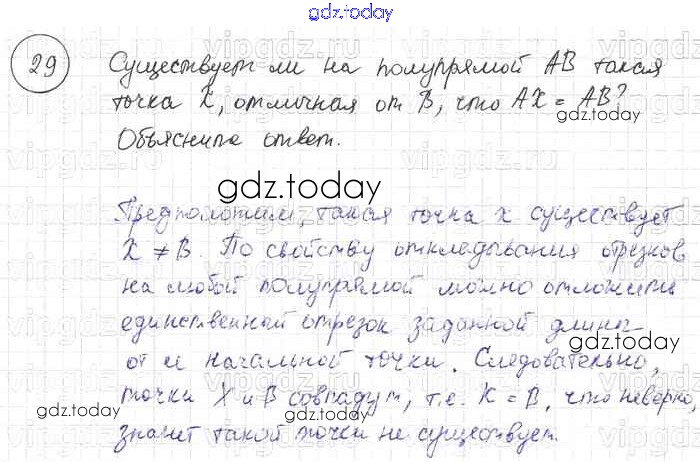 gdz.today
29 Существует ли на полупрямой AB такая
точка X, отличная от B, что AX = AB?
Объясните ответ.
gdz.today
Предположим, такая точка X существует
X ≠ B. По свойству откладывания отрезков
на любой полупрямой можно отложить
единственный отрезок заданной длины
от её начальной точки. Следовательно,
точки X и B совпадут, т.е. X = B, что неверно,
gdz.today
gdz.today
значит такой точки не существует.